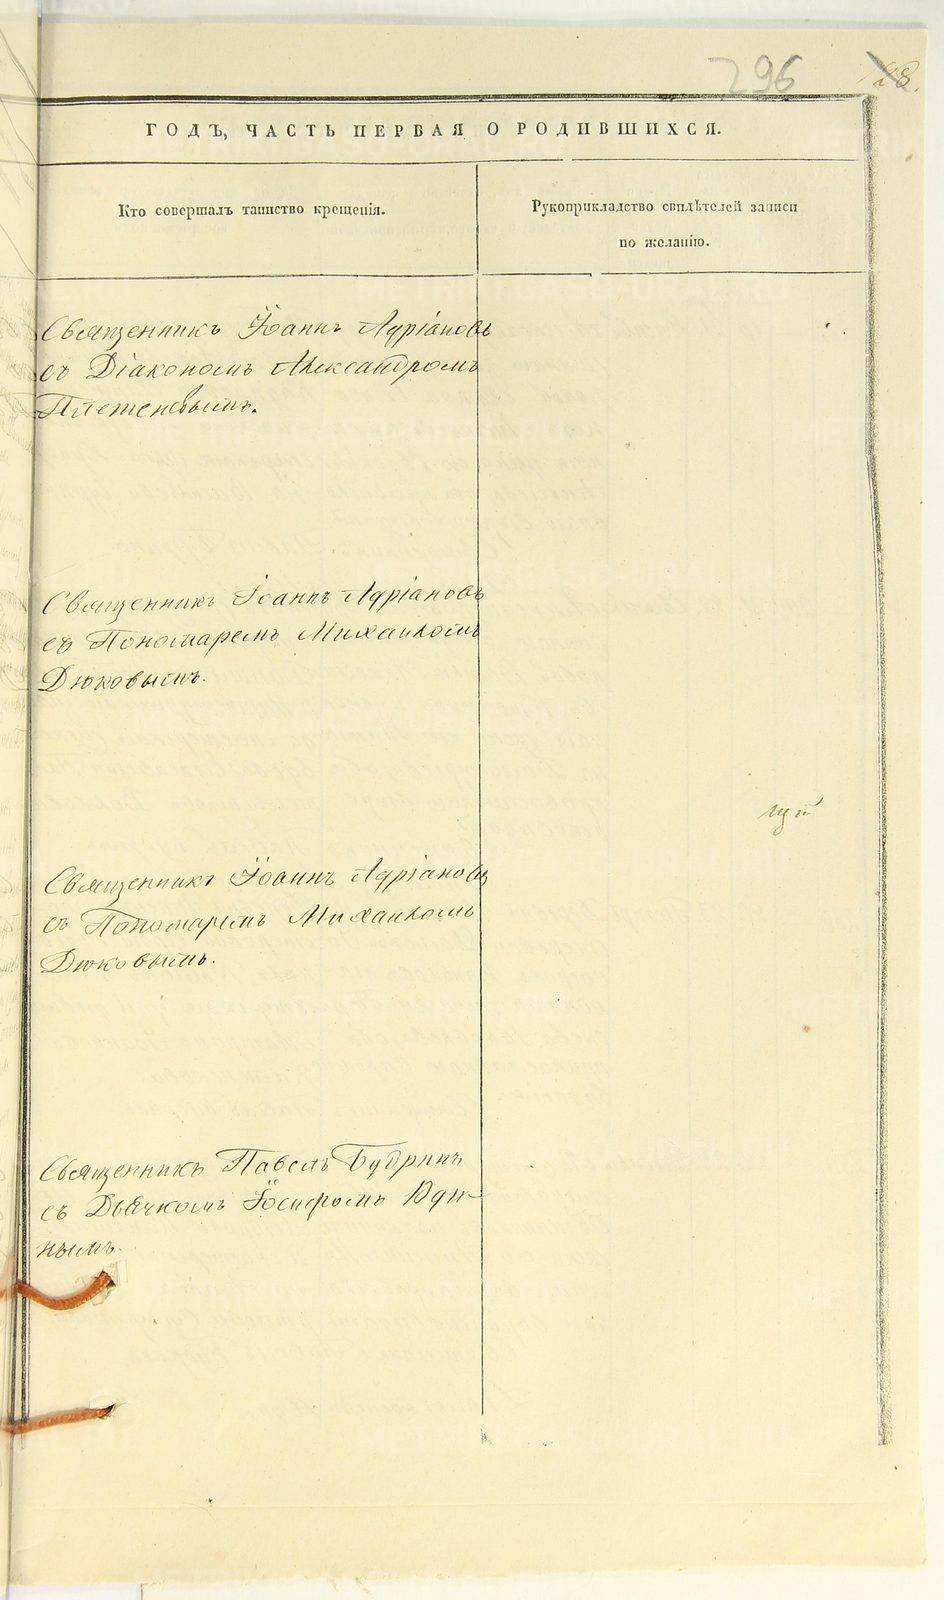 296
ГОДЪ, ЧАСТЬ ПЕРВАЯ О РОДИВШИХСЯ.
Кто совершалъ таинство крещенія.
Рукоприкладство свидѣтелей записи
по желанію.
Священникъ Іоаннъ Адріановъ
съ Діакономъ Александромъ
Плетеневымъ.
Священникъ Іоаннъ Адріановъ
съ Пономаремъ Михаиломъ
Дюковымъ.
Священникъ Іоаннъ Адріановъ
съ Пономаремъ Михаиломъ
Дюковымъ.
Священникъ Павелъ Будринъ
съ Дьячкомъ Іосифомъ
нымъ.
METRIKI.GASO-URAL.RU